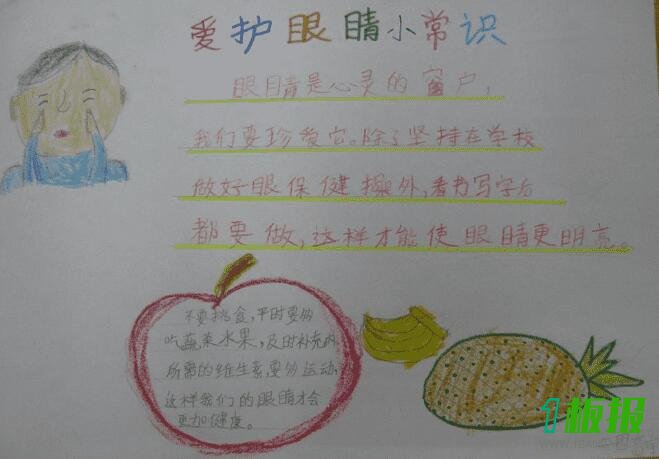 爱护眼睛小常识
眼睛是心灵的窗户，
我们要珍爱它。除了坚持在学校
做好眼保健操外，看书写字后
都要做，这样才能使眼睛更明亮。
不要挑食，平时要多
吃蔬菜水果，及时补充肉
所需的维生素，要多运动，
这样我们的眼睛才会
更加健康。
1板报